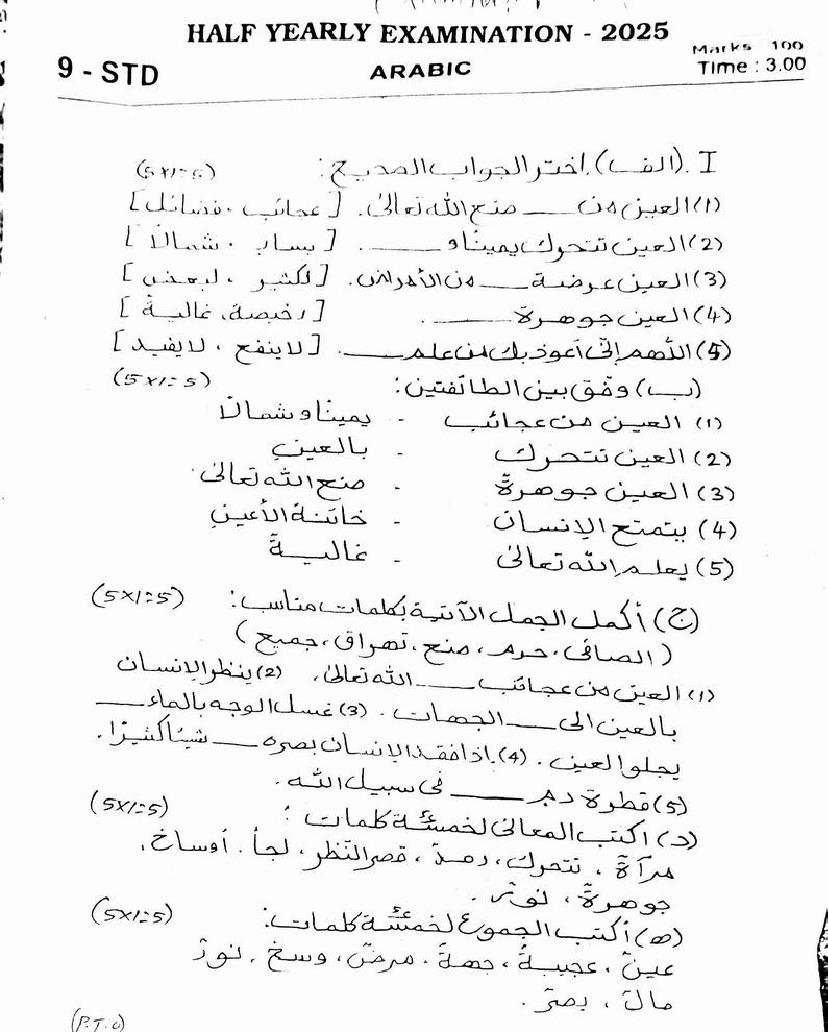 HALF YEARLY EXAMINATION - 2025
Marks 100
9 - STD
ARABIC
Time : 3.00
I .(الف) اختر الجواب الصحيح: (5x1=5)
(1) العين من ___ صنع الله تعالى. [عجائب ، فضائل]
(2) العين تتحرك يمينا و ___ . [يسار ، شمالًا]
(3) العين عرضة ___ من الأمراض. [لكثير ، لبعض]
(4) العين جوهرة ___ . [رخيصة، غالية]
(5) اللهم إنى أعوذ بك من علم ___ . [لا ينفع ، لا يفيد]
(ب) وفّق بين الطائفتين: (5x1=5)
(1) العين من عجائب - يمينا و شمالًا
(2) العين تتحرك - بالعين
(3) العين جوهرة - صنع الله تعالى
(4) يتمتع الإنسان - خائنة الأعين
(5) يعلم الله تعالى - غالية
(ج) أكمل الجمل الآتية بكلمات مناسب: (5x1=5)
(الصافى، حرم، صنع، تهراق، جميع)
(1) العين من عجائب ___ الله تعالى. (2) ينظر الإنسان
بالعين الى ___ الجهات. (3) غسل الوجه بالماء ___
يجلو العين. (4) اذا فقد الإنسان بصره ___ شيئا كثيرًا.
(5) قطرة دم ___ فى سبيل الله.
(د) اكتب المعانى لخمسة كلمات : (5x1=5)
مرآة ، تتحرك، رمد، قصر النظر، لجأ. أوساخ،
جوهرة، نور.
(ه) أكتب الجموع لخمسة كلمات: (5x1=5)
عين ، عجيبة، جهة، مرض، وسخ، نور
مال ، بصر .
(P.T.O)